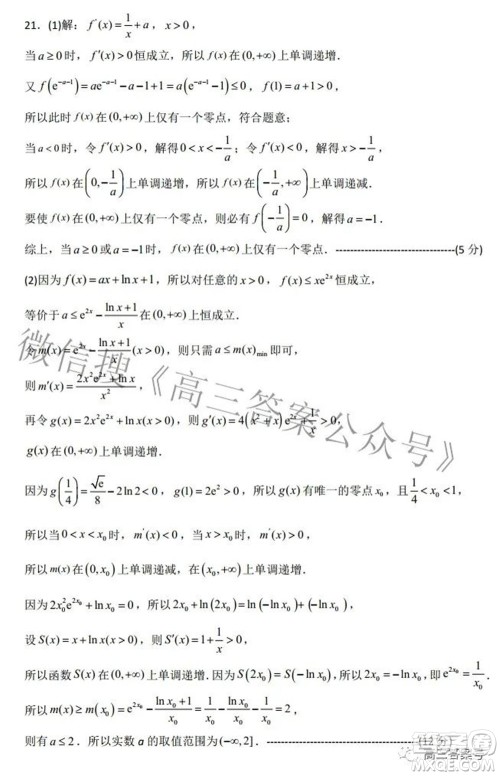 21. (1)解：f'(x)=1/x+a，x>0，
当 a≥0时，f'(x)>0恒成立，所以 f(x)在(0,+∞)上单调递增.
又 f(e^(-a-1))=ae^(-a-1)-a-1+1=a(e^(-a-1)-1)≤0，f(1)=a+1>0，
所以此时 f(x)在(0,+∞)上仅有一个零点，符合题意；
当a<0时，令 f'(x)>0，解得0<x<-1/a；令 f'(x)<0，解得x>-1/a，
所以 f(x)在(0,-1/a)上单调递增，f(x)在(-1/a,+∞)上单调递减.
要使 f(x)在(0,+∞)上仅有一个零点，则必有 f(-1/a)=0，解得a=-1.
综上，当 a≥0或a=-1时，f(x)在(0,+∞)上仅有一个零点.--------------------------------(5 分)
(2)因为 f(x)=ax+lnx+1，所以对任意的 x>0，f(x)≤xe^(2x)恒成立，
等价于a≤e^(2x)-(lnx+1)/x在(0,+∞)上恒成立.
令m(x)=e^(2x)-(lnx+1)/x(x>0)，则只需a≤m(x)_min即可，
则m'(x)=(2x²e^(2x)+lnx)/x²，
再令g(x)=2x²e^(2x)+lnx(x>0)，则g'(x)=4(x²+x)e^(2x)+1/x>0，
g(x)在(0,+∞)上单调递增.
因为g(1/4)=√e/8-2ln2<0，g(1)=2e²>0，所以g(x)有唯一的零点x₀，且1/4<x₀<1，
所以当0<x<x₀时，m'(x)<0，当x>x₀时，m'(x)>0，
所以m(x)在(0,x₀)上单调递减，在(x₀,+∞)上单调递增.
因为2x₀²e^(2x₀)+lnx₀=0，所以2x₀+ln(2x₀)=ln(-lnx₀)+(-lnx₀)，
设S(x)=x+lnx(x>0)，则S'(x)=1+1/x>0，
所以函数S(x)在(0,+∞)上单调递增.因为S(2x₀)=S(-lnx₀)，所以2x₀=-lnx₀，即e^(2x₀)=1/x₀.
所以m(x)≥m(x₀)=e^(2x₀)-(lnx₀+1)/x₀=1/x₀-lnx₀/x₀-1/x₀=2，
则有a≤2.所以实数a的取值范围为(-∞,2].--------------------------------(12 分)
微信搜《高三答案公众号》
高三答案号